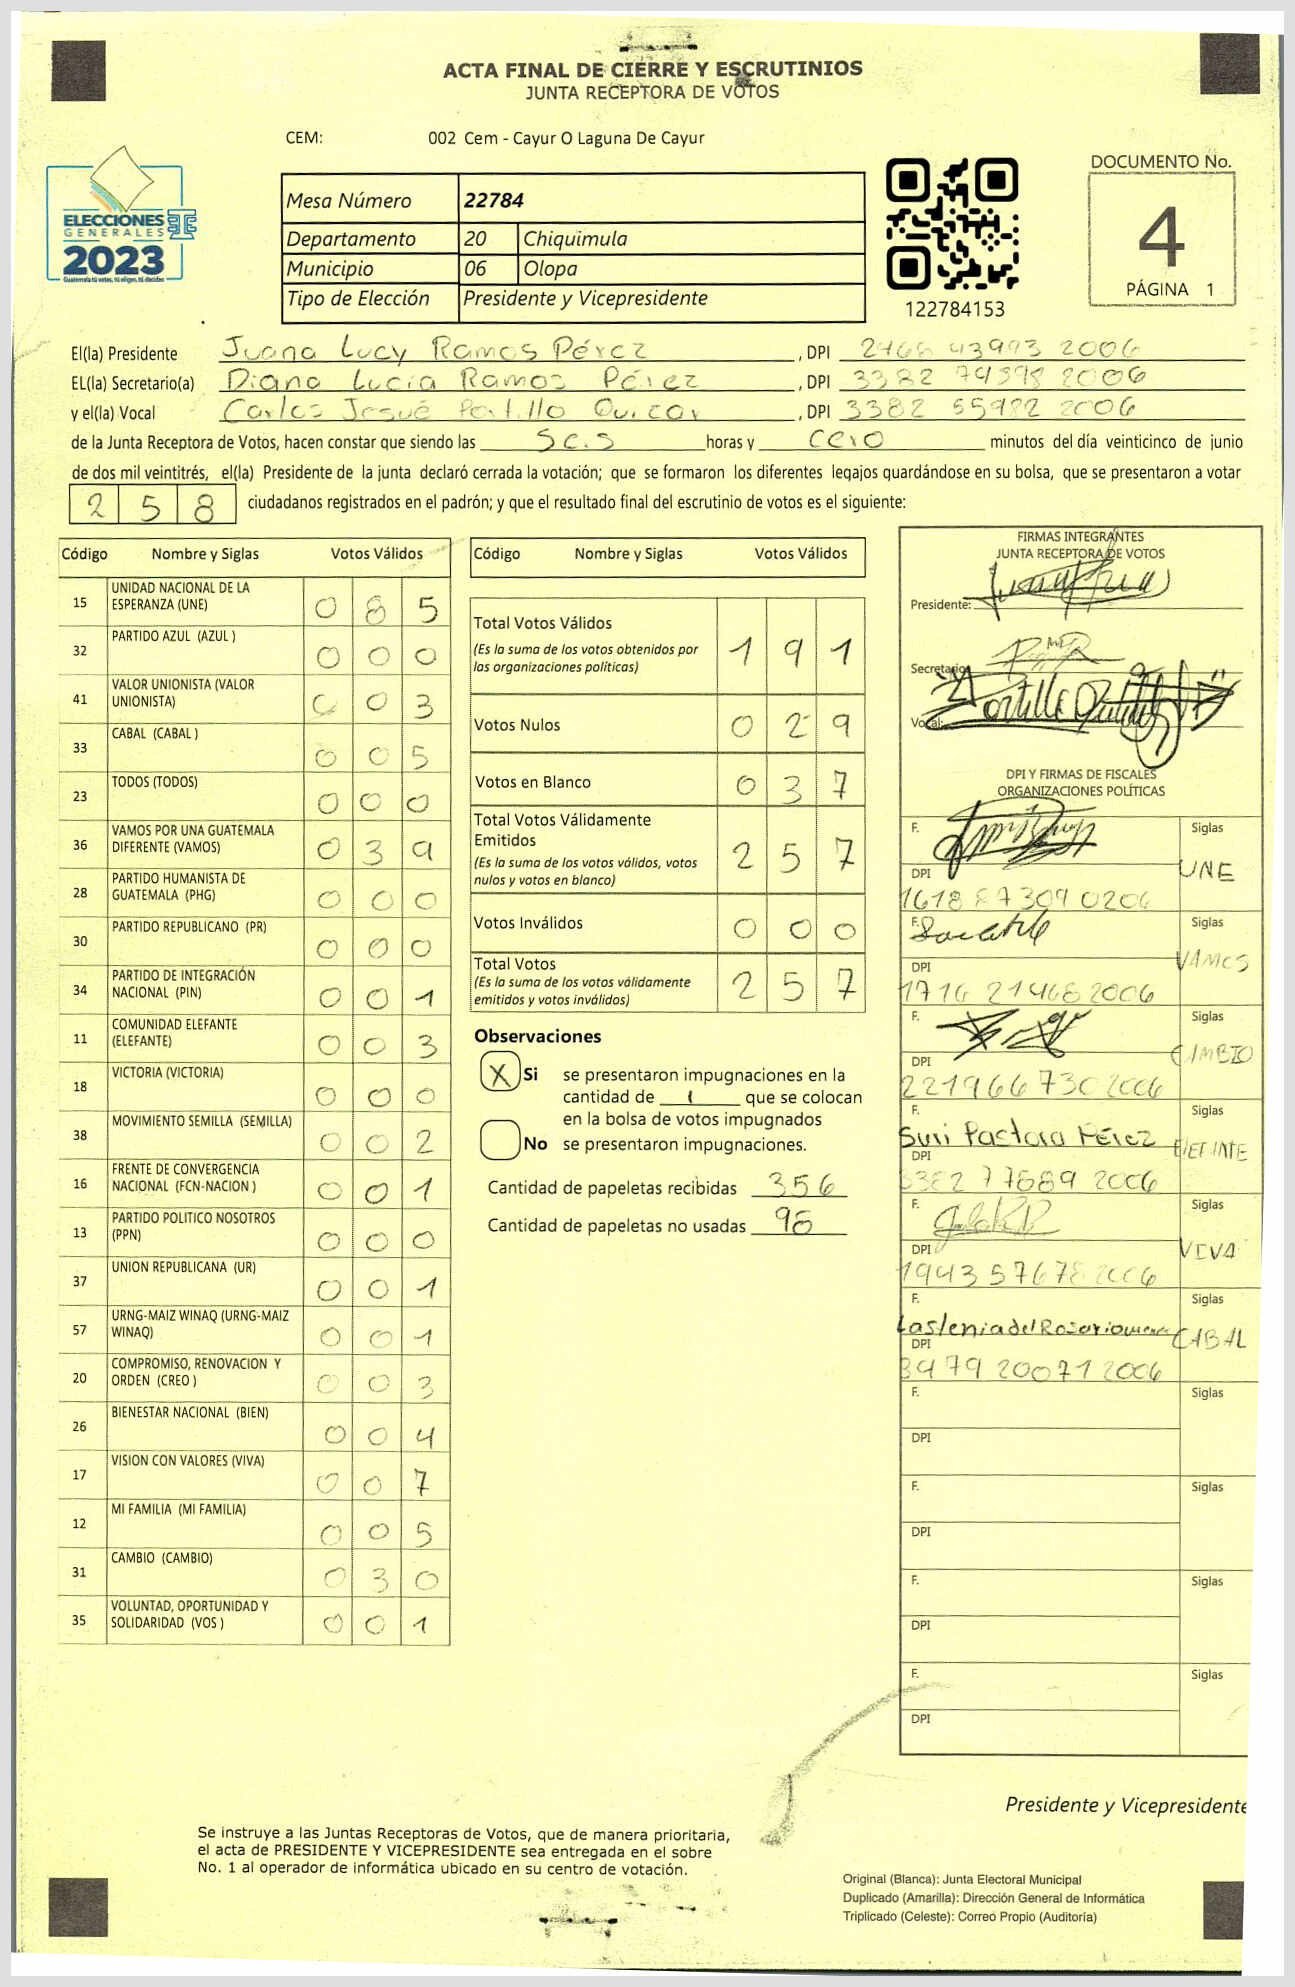 ACTA FINAL DE CIERRE Y ESCRUTINIOS
JUNTA RECEPTORA DE VOTOS
CEM: 002 Cem - Cayur O Laguna De Cayur
ELECCIONES
GENERALES
2023
Guatemala tú votas, tú eliges, tú decides
Mesa Número 22784
Departamento 20 Chiquimula
Municipio 06 Olopa
Tipo de Elección Presidente y Vicepresidente
122784153
DOCUMENTO No.
4
PÁGINA 1
El(la) Presidente Juana Lucy Ramos Pérez , DPI 2468 43993 2006
EL(la) Secretario(a) Diana Lucía Ramos Pérez , DPI 3382 74898 2006
y el(la) Vocal Carlos Josué Portillo Quizar , DPI 3382 55922 2006
de la Junta Receptora de Votos, hacen constar que siendo las Seis horas y cero minutos del día veinticinco de junio
de dos mil veintitrés, el(la) Presidente de la junta declaró cerrada la votación; que se formaron los diferentes legajos guardándose en su bolsa, que se presentaron a votar
258 ciudadanos registrados en el padrón; y que el resultado final del escrutinio de votos es el siguiente:
Código Nombre y Siglas Votos Válidos
15 UNIDAD NACIONAL DE LA ESPERANZA (UNE) 0 8 5
32 PARTIDO AZUL (AZUL ) 0 0 0
41 VALOR UNIONISTA (VALOR UNIONISTA) 0 0 3
33 CABAL (CABAL ) 0 0 5
23 TODOS (TODOS) 0 0 0
36 VAMOS POR UNA GUATEMALA DIFERENTE (VAMOS) 0 3 9
28 PARTIDO HUMANISTA DE GUATEMALA (PHG) 0 0 0
30 PARTIDO REPUBLICANO (PR) 0 0 0
34 PARTIDO DE INTEGRACIÓN NACIONAL (PIN) 0 0 1
11 COMUNIDAD ELEFANTE (ELEFANTE) 0 0 3
18 VICTORIA (VICTORIA) 0 0 0
38 MOVIMIENTO SEMILLA (SEMILLA) 0 0 2
16 FRENTE DE CONVERGENCIA NACIONAL (FCN-NACION ) 0 0 1
13 PARTIDO POLITICO NOSOTROS (PPN) 0 0 0
37 UNION REPUBLICANA (UR) 0 0 1
57 URNG-MAIZ WINAQ (URNG-MAIZ WINAQ) 0 0 1
20 COMPROMISO, RENOVACION Y ORDEN (CREO ) 0 0 3
26 BIENESTAR NACIONAL (BIEN) 0 0 4
17 VISION CON VALORES (VIVA) 0 0 7
12 MI FAMILIA (MI FAMILIA) 0 0 5
31 CAMBIO (CAMBIO) 0 3 0
35 VOLUNTAD, OPORTUNIDAD Y SOLIDARIDAD (VOS ) 0 0 1
Código Nombre y Siglas Votos Válidos
Total Votos Válidos 1 9 1
(Es la suma de los votos obtenidos por las organizaciones políticas)
Votos Nulos 0 2 9
Votos en Blanco 0 3 7
Total Votos Válidamente Emitidos 2 5 7
(Es la suma de los votos válidos, votos nulos y votos en blanco)
Votos Inválidos 0 0 0
Total Votos 2 5 7
(Es la suma de los votos válidamente emitidos y votos inválidos)
Observaciones
X Si se presentaron impugnaciones en la
cantidad de 1 que se colocan
en la bolsa de votos impugnados
No se presentaron impugnaciones.
Cantidad de papeletas recibidas 356
Cantidad de papeletas no usadas 98
FIRMAS INTEGRANTES
JUNTA RECEPTORA DE VOTOS
Presidente:
Secretario
Vocal:
DPI Y FIRMAS DE FISCALES
ORGANIZACIONES POLÍTICAS
F. Siglas
DPI UNE
1618 87309 0206
F. Siglas
DPI VAMOS
1716 21468 2006
F. Siglas
DPI CAMBIO
2219 66730 2006
F. Siglas
Suri Pastora Pérez
DPI ELEFANTE
3382 77889 2006
F. Siglas
DPI VIVA
1943 57678 2006
F. Siglas
DPI CABAL
3479 20071 2006
F. Siglas
DPI
F. Siglas
DPI
F. Siglas
DPI
F. Siglas
DPI
Presidente y Vicepresidente
Se instruye a las Juntas Receptoras de Votos, que de manera prioritaria,
el acta de PRESIDENTE Y VICEPRESIDENTE sea entregada en el sobre
No. 1 al operador de informática ubicado en su centro de votación.
Original (Blanca): Junta Electoral Municipal
Duplicado (Amarilla): Dirección General de Informática
Triplicado (Celeste): Correo Propio (Auditoría)